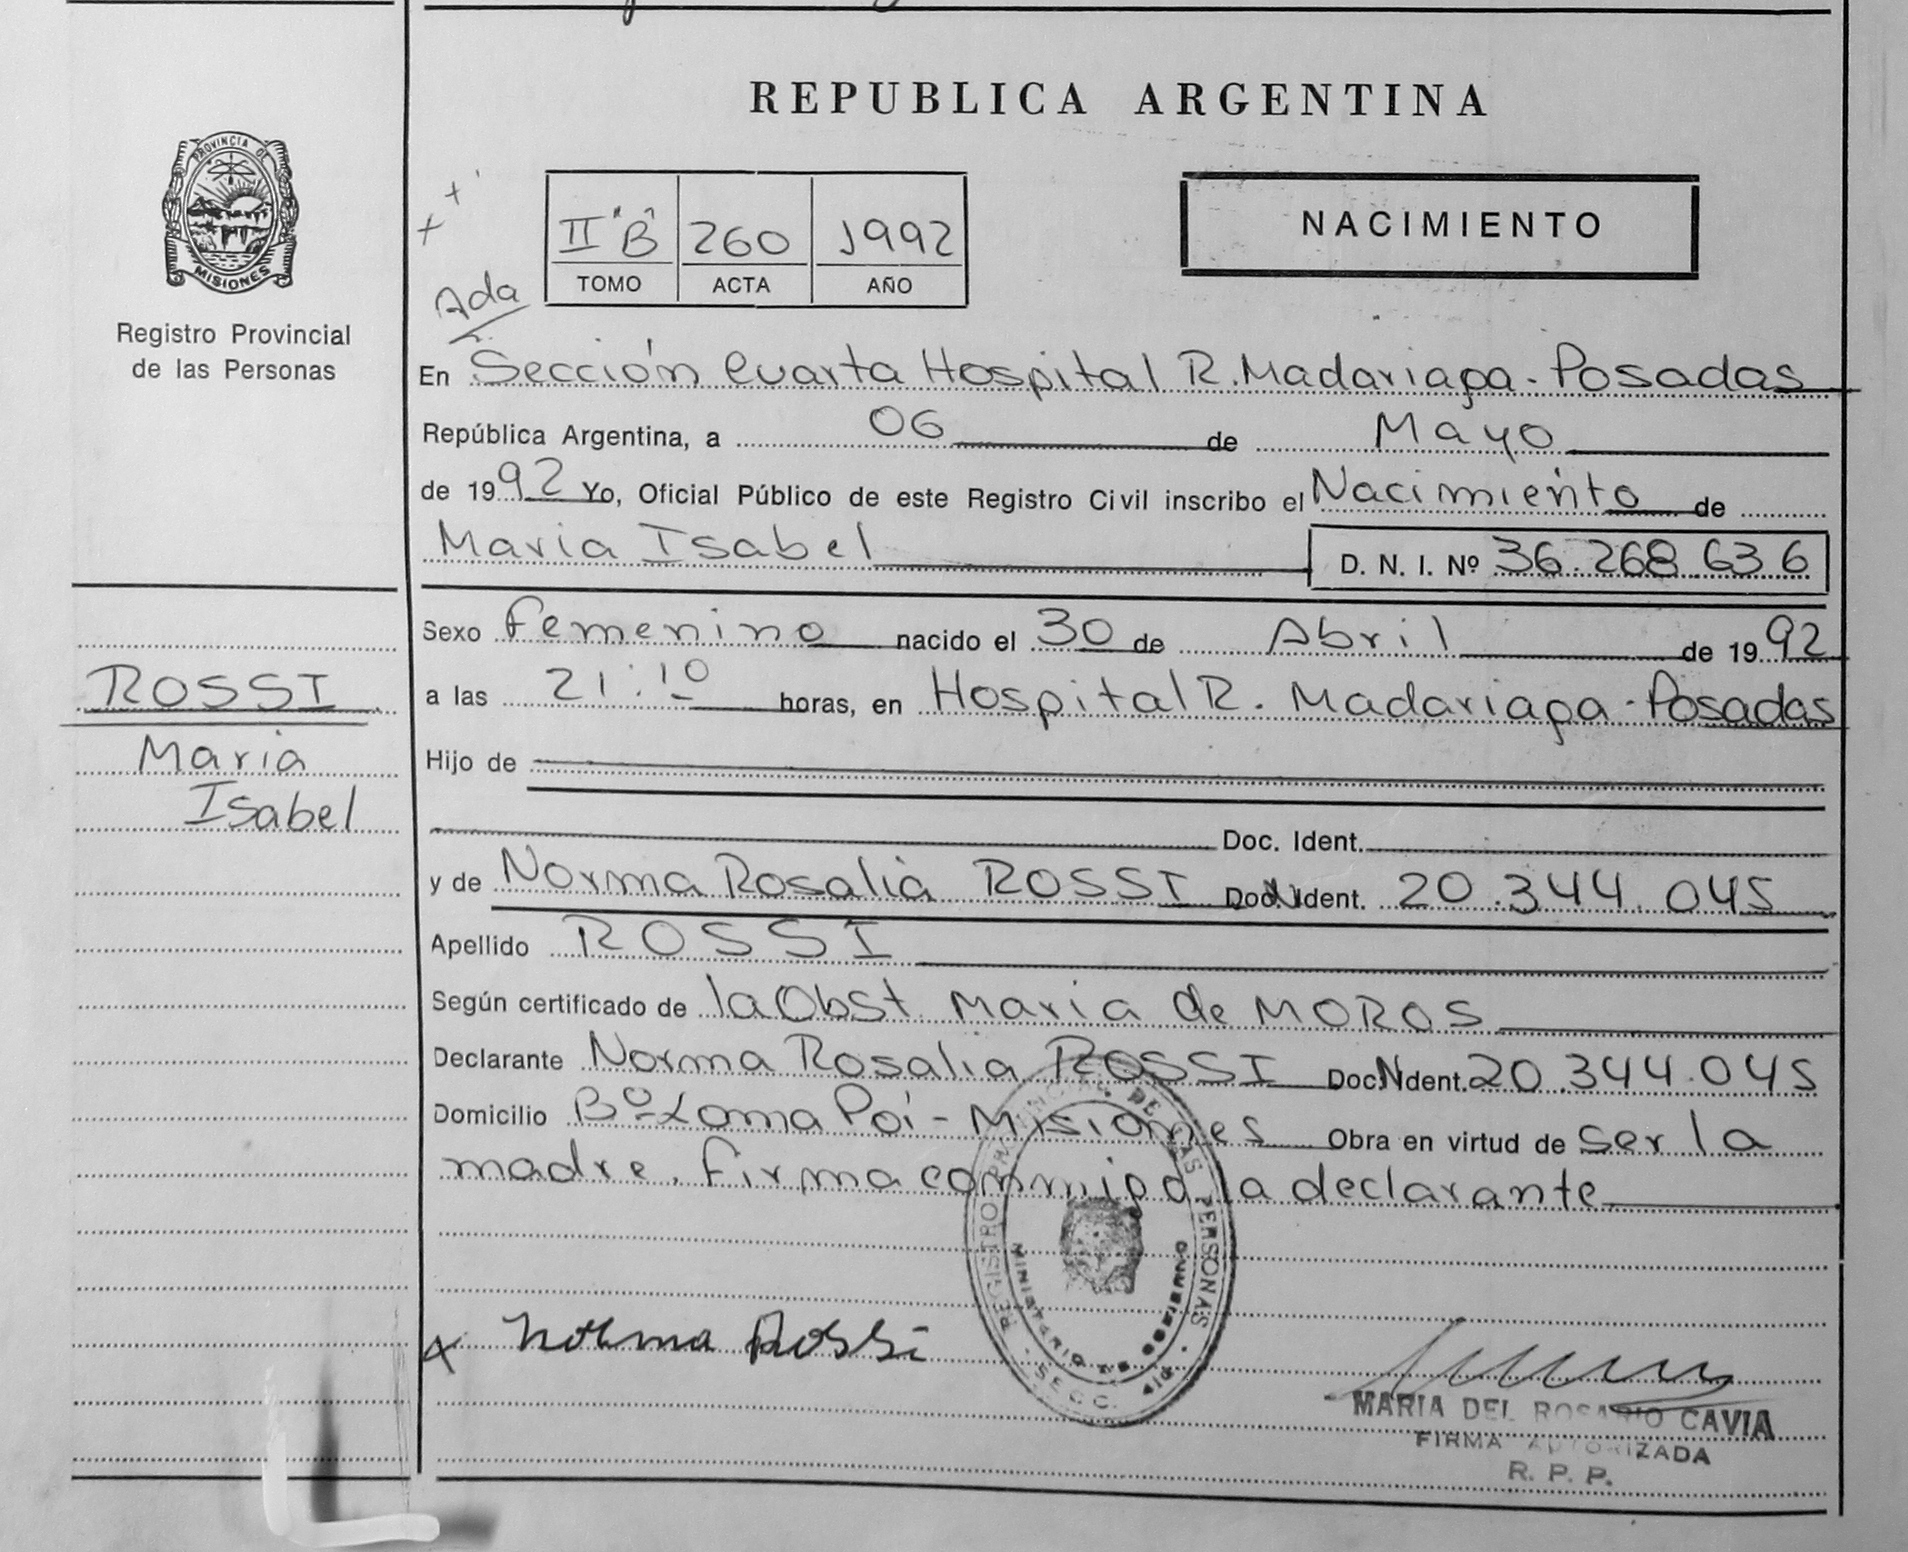 REPUBLICA ARGENTINA
PROVINCIA DE
MISIONES
Registro Provincial
de las Personas
II "B" 260 1992
TOMO ACTA AÑO
NACIMIENTO
Ada
En Sección Cuarta Hospital R. Madariaga - Posadas
República Argentina, a 06 de Mayo
de 1992 Yo, Oficial Público de este Registro Civil inscribo el Nacimiento de
Maria Isabel D. N. I. Nº 36.268.636
Sexo Femenino nacido el 30 de Abril de 1992
ROSSI
Maria
Isabel
a las 21:10 horas, en Hospital R. Madariaga - Posadas
Hijo de
Doc. Ident.
y de Norma Rosalia ROSSI Doc. Ident. 20.344.045
Apellido ROSSI
Según certificado de la Obst Maria de MOROS
Declarante Norma Rosalia ROSSI Doc. Ident. 20.344.045
Domicilio Bº Loma Poi - Misiones Obra en virtud de ser la
madre. Firma conmigo la declarante
REGISTRO DE LAS PERSONAS
MINISTERIO DE GOBIERNO
SECC.
x Norma Rossi
MARIA DEL ROSARIO CAVIA
FIRMA AUTORIZADA
R. P. P.